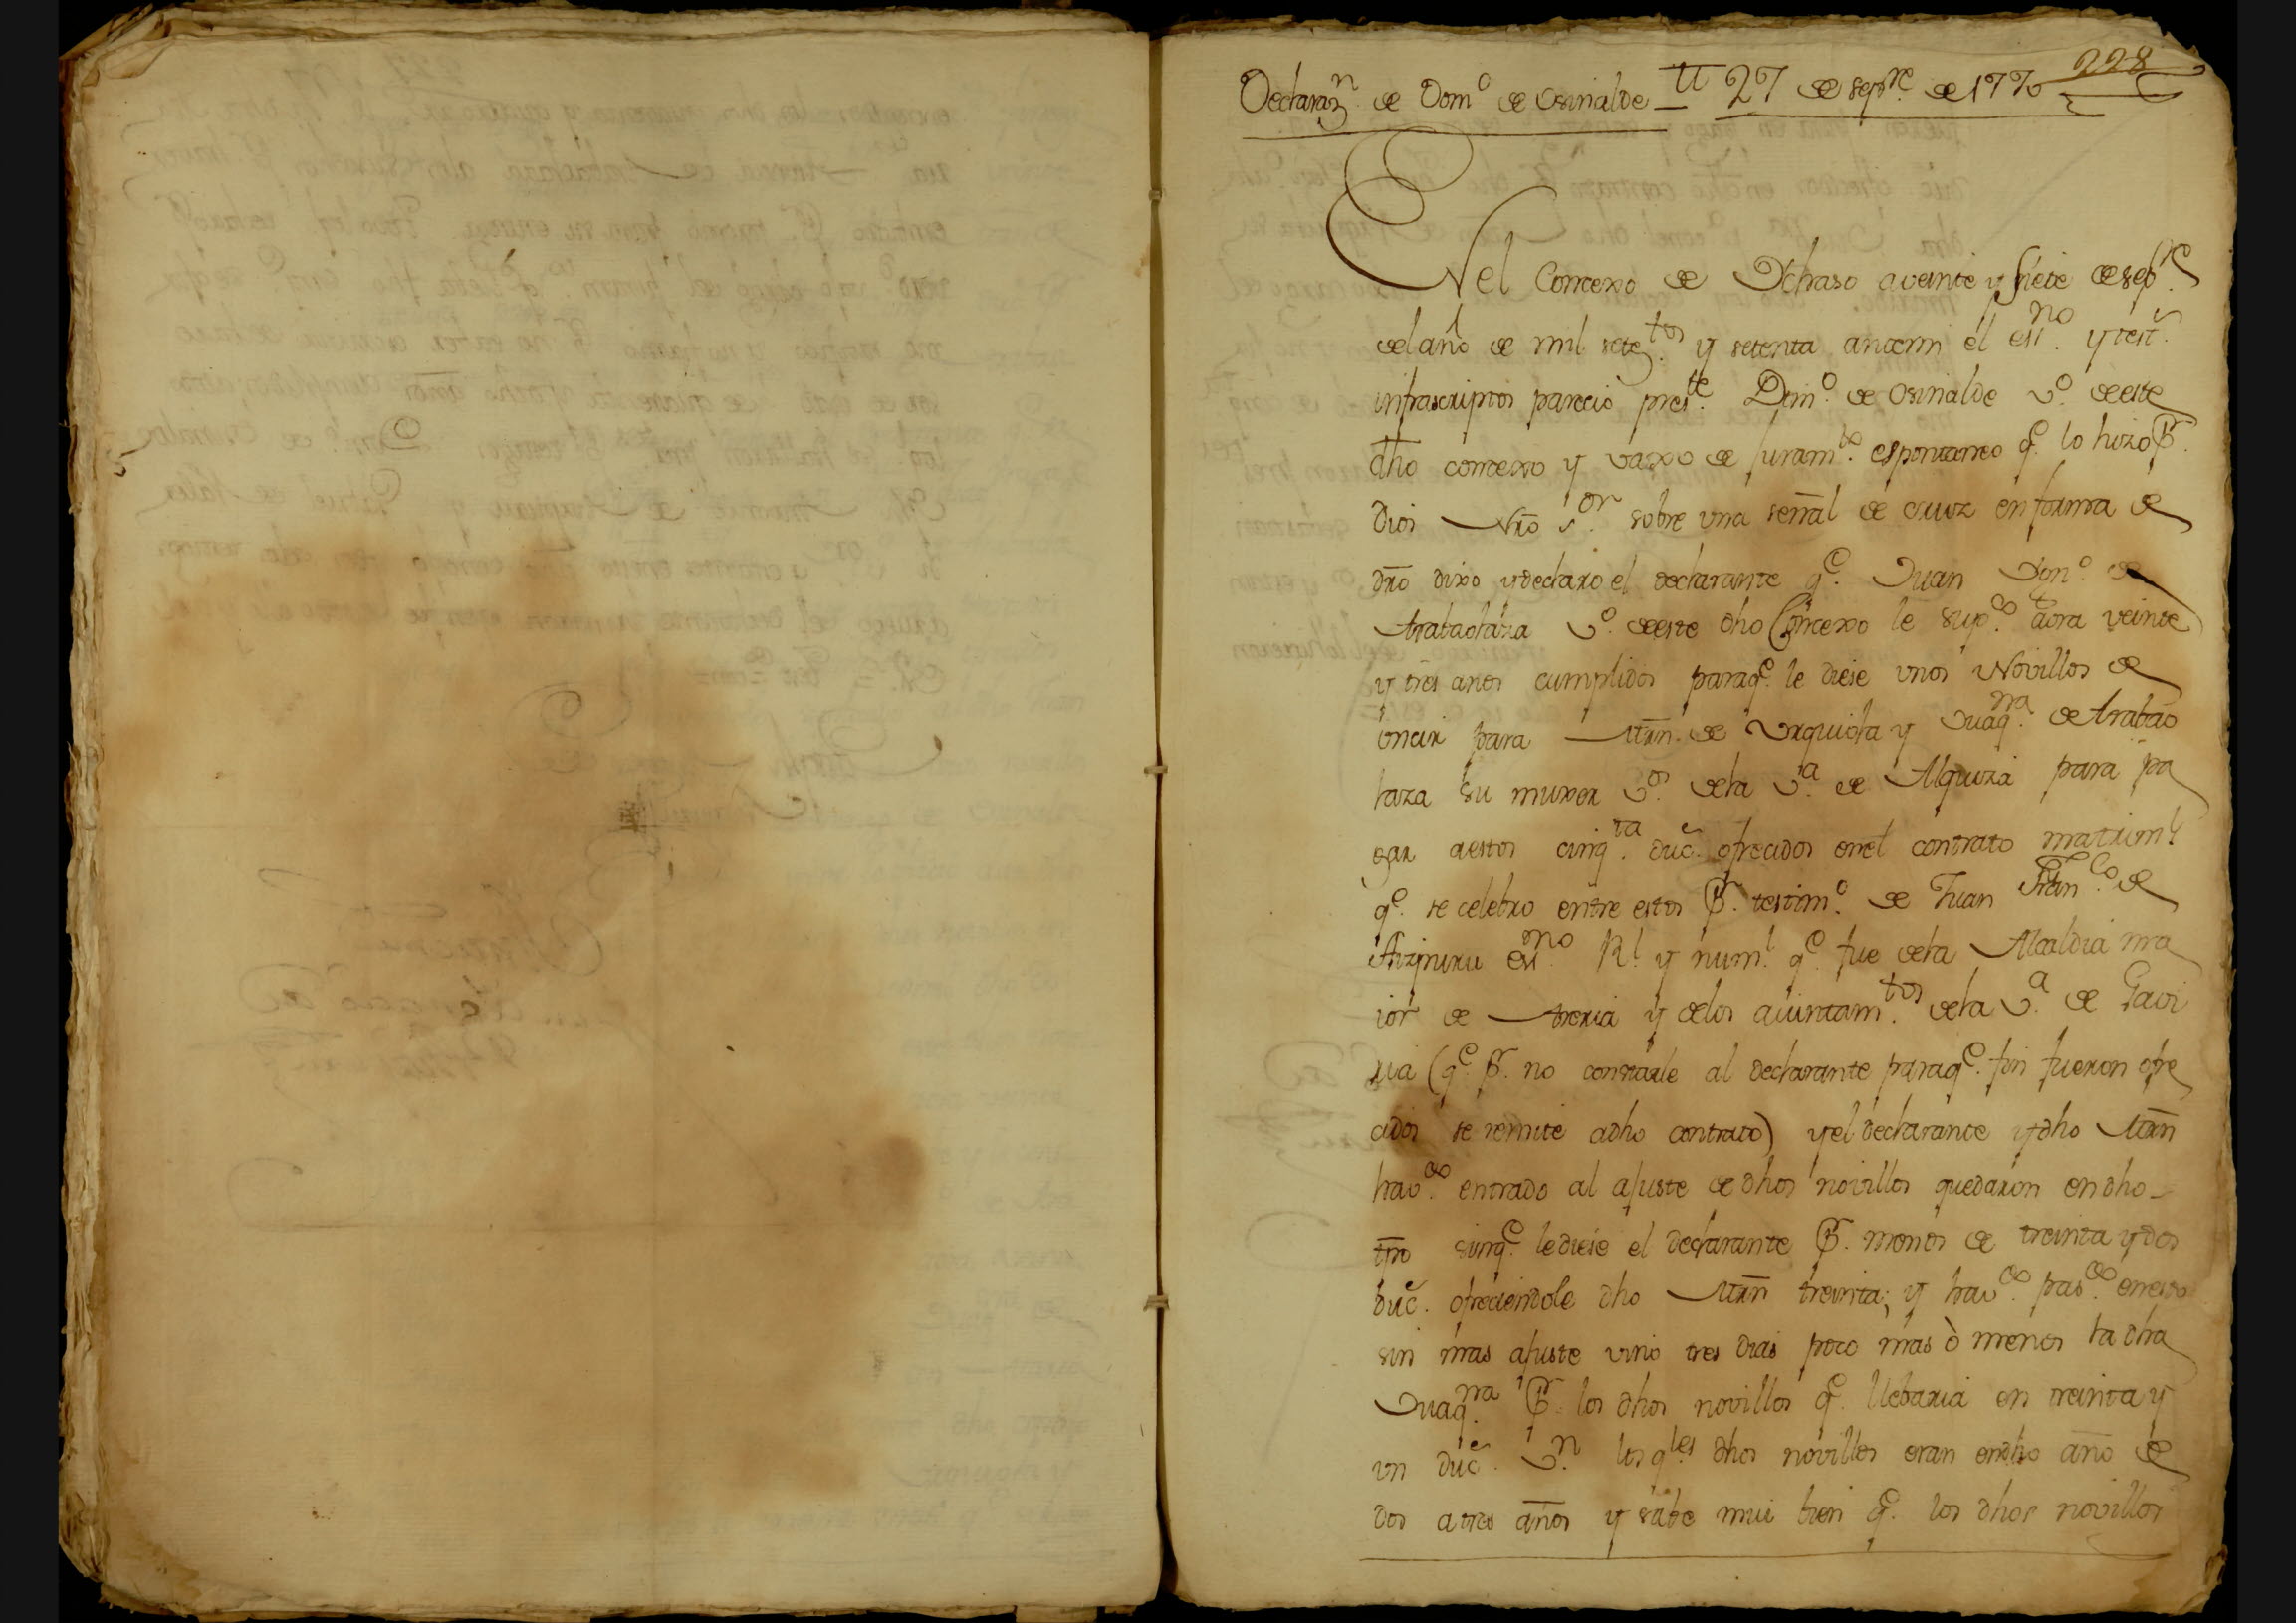 Declarazn. de Domo de Osinalde — tt 27 de sepre. de 1770
228
Enel Concexo de Ychaso aveinte y siete de sepre.
del año de mil seteztos. y setenta antemi el esno. y test.
infrascriptos parecio preste. Domo. de Osinalde vo. deeste
dho concexo y vaxo de juramto. espontaneo qe. lo hizo Pr.
Dios Nro sor. sobre una señal de cruz enforma de
dro dixo ydeclaro el declarante qe. Juan Ygno. de
Arabaolaza vo. deeste dho Concexo le supco. aora veinte
y tres años cumplidos paraqe. le diese unos Novillos de
uncir para Mrn. de Urquiola y Juaqna. de Arabao
laza su muxer vos. dela va. de Alquiza para pa
gar aestos cinqta. duc. ofrecidos enel contrato matriml.
qe. se celebro entre estos Pr. testimo. de Juan Franco. de
Aizpuru esno. Rl. y numl. qe. fue dela Alcaldia ma
ior de Areria y delos aiuntamtos. dela va. de Gavi
ria (qe. Pr. no constarle al declarante paraqe. fin fueron ofre
cidos se remite adho contrato) yel declarante ydho Mrn
havdo. entrado al ajuste de dhos novillos quedaron endho
tpo sinqe. lediese el declarante Pr. menos de treinta ydos
duc. ofreciendole dho Mrn treinta; y havdo. pasdo. enesto
sin mas ajuste vino tres dias poco mas ò menos la dha
Juaqna. Pr. los dhos novillos qe. llebaria en treinta y
un duc. vn. los qles dhos novillos eran endho año de
dos atres años y sabe mui bien qe. los dhos novillos